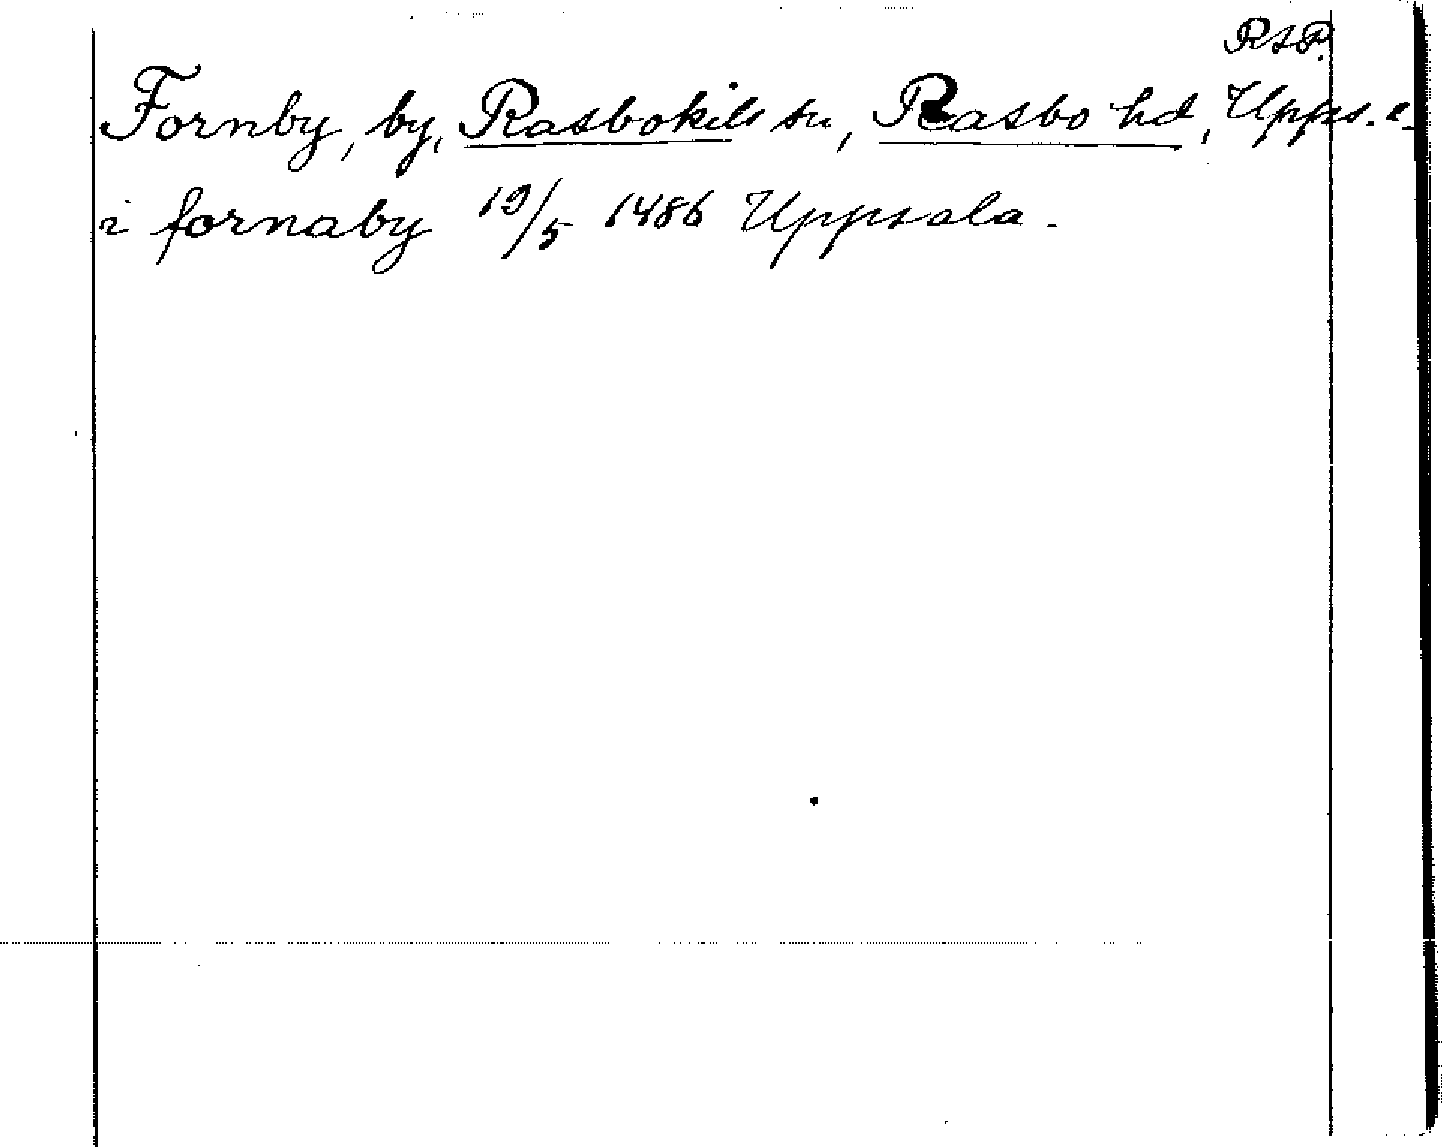 RAP.
Fornby, by, Rasbokils sn, Rasbo hd, Upps. l.
i fornaby 19/5 1486 Uppsala.